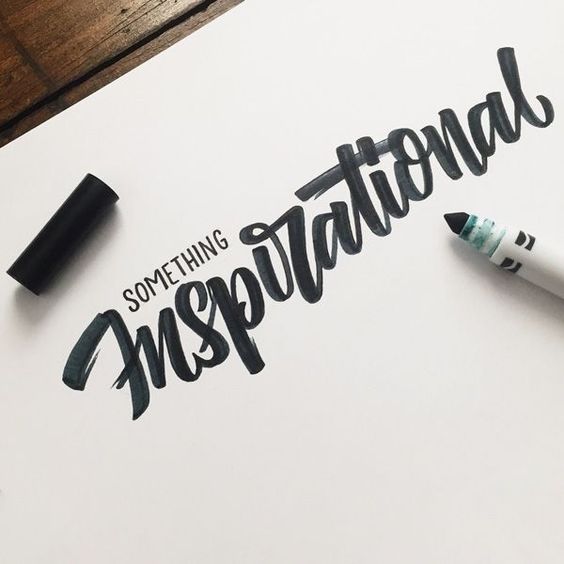 SOMETHING
Inspirational